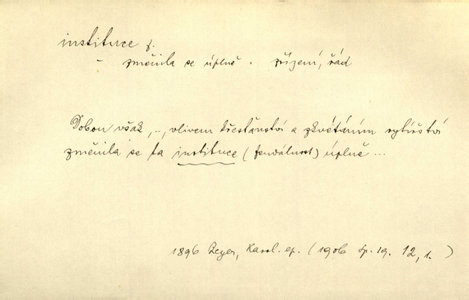 instituce f.
~ změnila se úplně. zřízení, řád
Dobou však, .., vlivem křesťanství a zkvétáním rytířství
změnila se ta instituce (feudálnost) úplně ...
1896 Zeyer, Karol. ep. (1906 Sp. 19. 12, 1.)